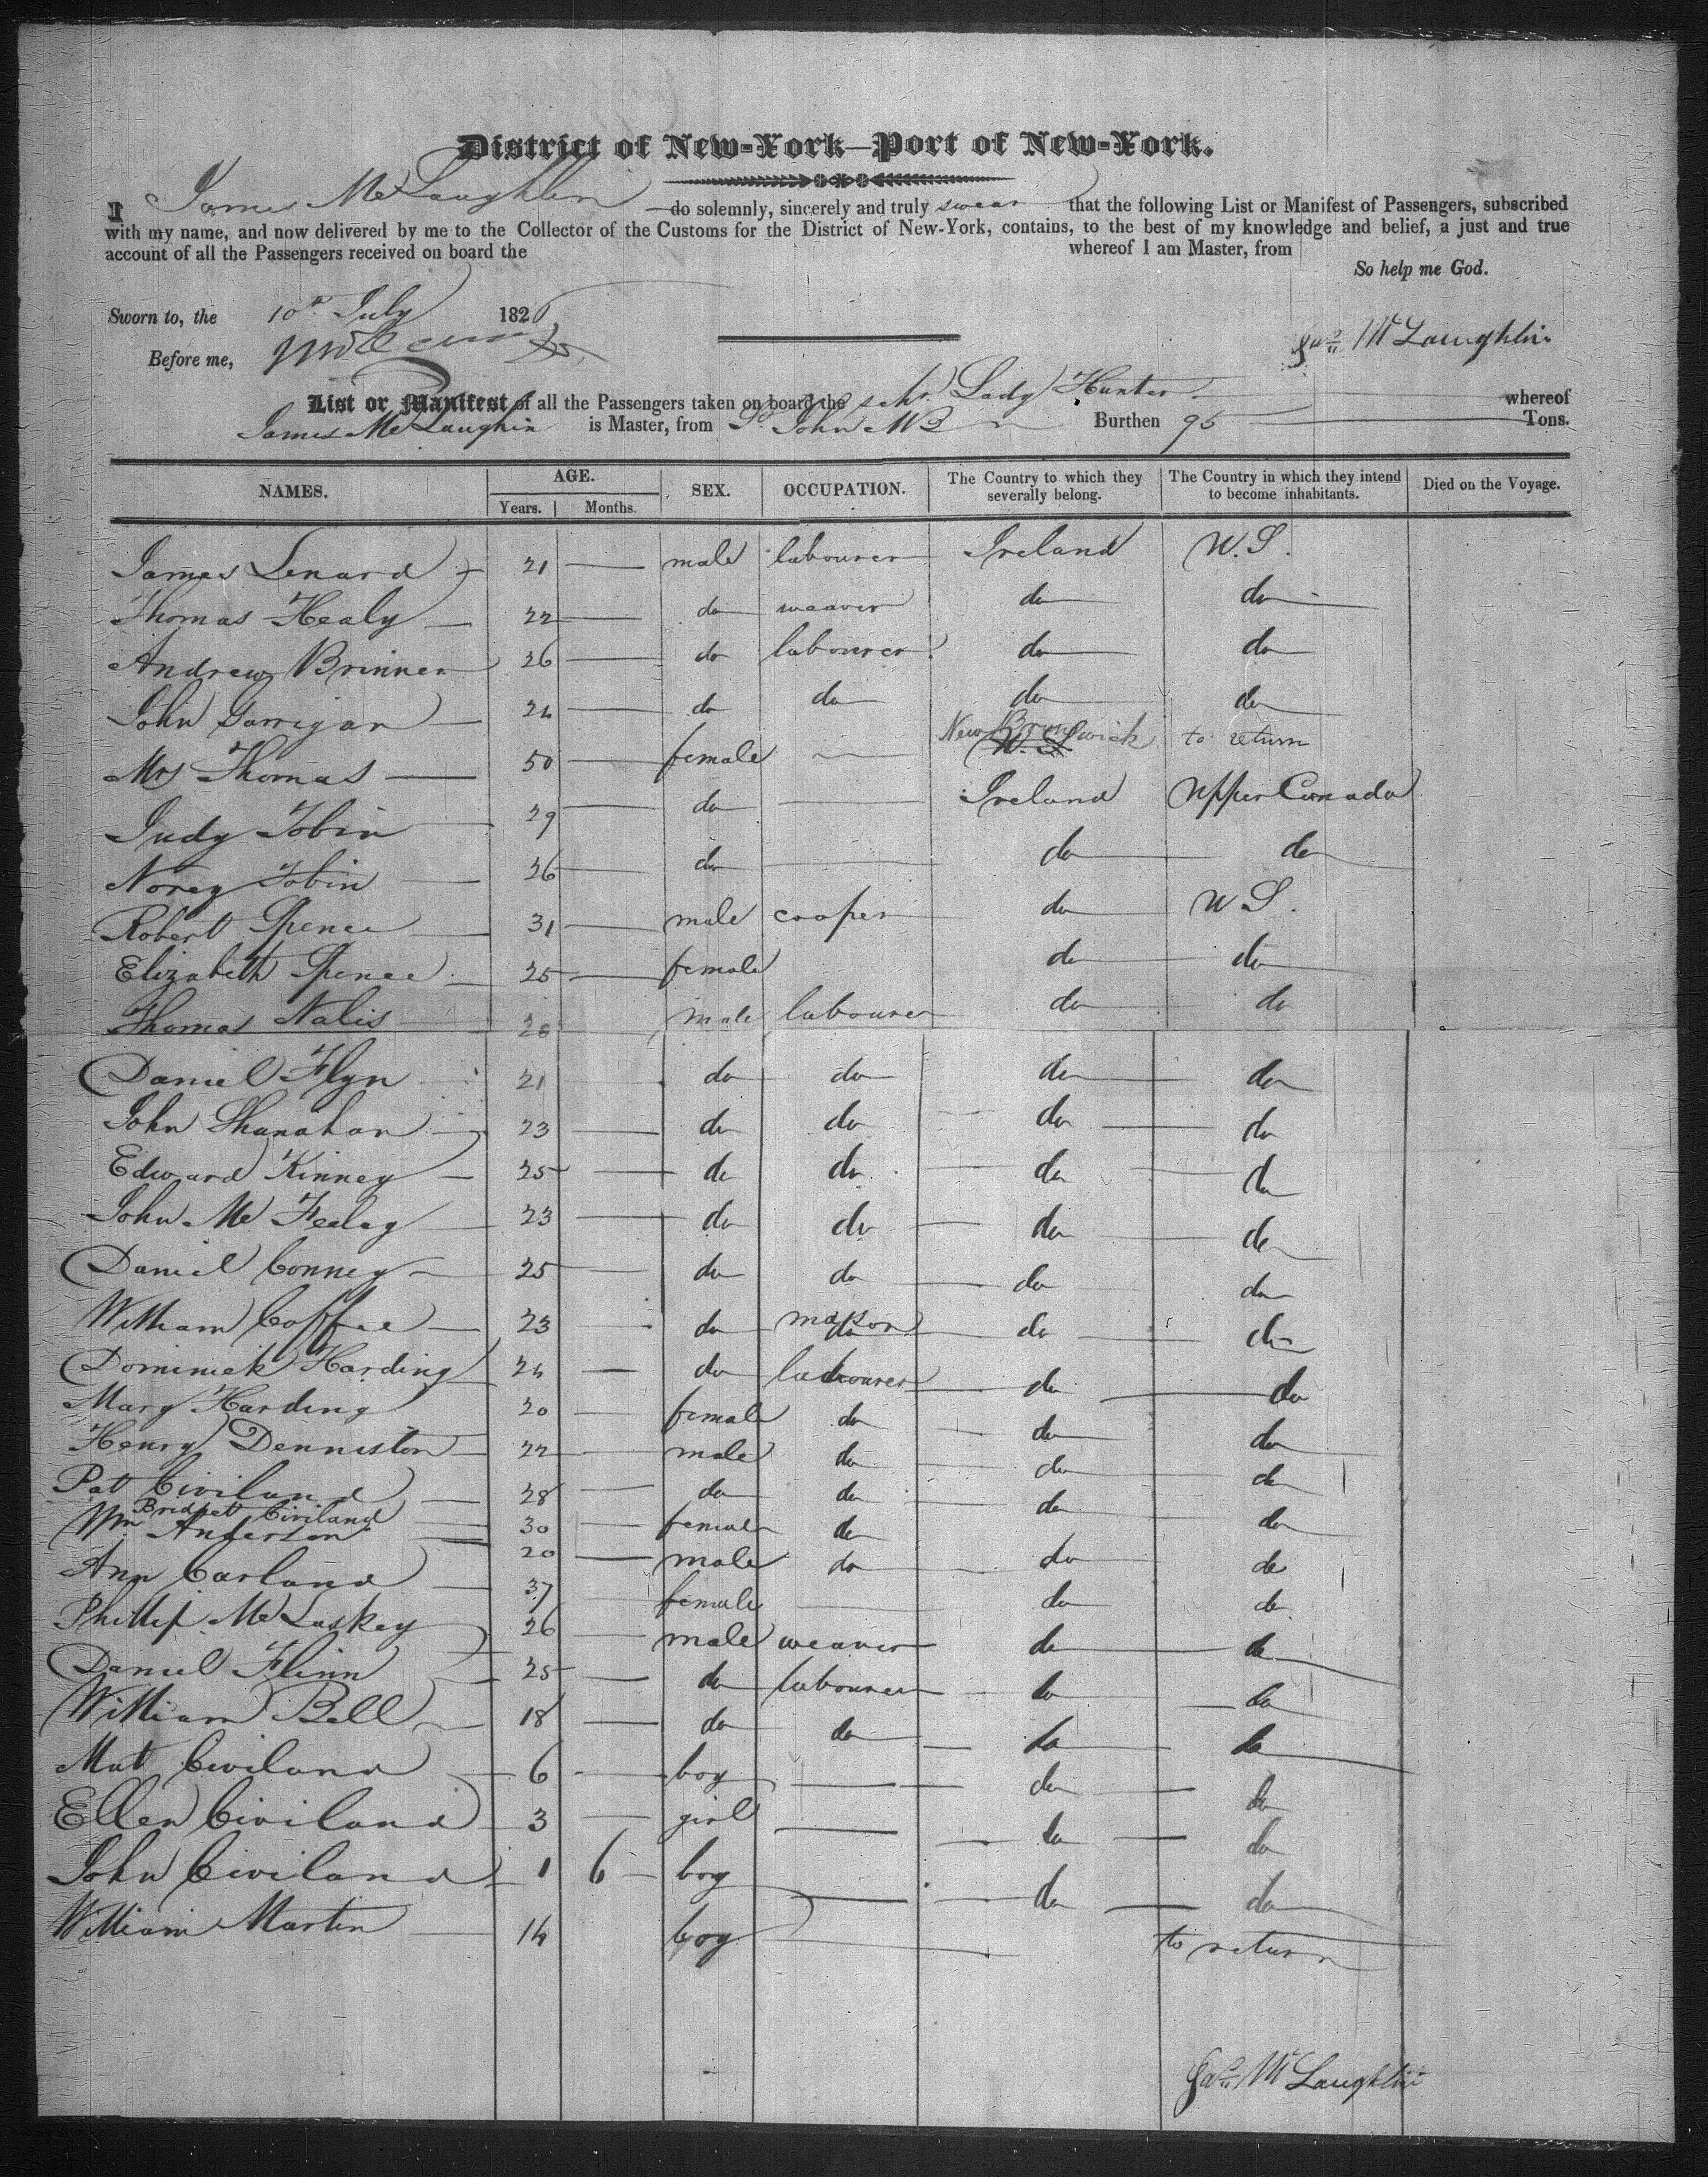 District of New-York—Port of New-York.
I James McLaughlin do solemnly, sincerely and truly swear that the following List or Manifest of Passengers, subscribed
with my name, and now delivered by me to the Collector of the Customs for the District of New-York, contains, to the best of my knowledge and belief, a just and true
account of all the Passengers received on board the whereof I am Master, from
So help me God.
Sworn to, the 10th July 182
Before me,
Jas McLaughlin
List or Manifest of all the Passengers taken on board the schr. Lady Hunter whereof
James McLaughin is Master, from St John NB Burthen 95 Tons.
NAMES. AGE. SEX. OCCUPATION. The Country to which they severally belong. The Country in which they intend to become inhabitants. Died on the Voyage.
Years. Months.
James Lenard 21 male labourer Ireland U.S.
Thomas Healy 22 do weaver do do
Andrew Brinner 26 do labourer do do
John Garrigan 24 do do do do
Mrs Thomas 50 female New Brunswick to return
Judy Tobin 29 do Ireland Upper Canada
Norey Tobin 26 do do do
Robert Spence 31 male cooper do U S.
Elizabeth Spence 25 female do do
Thomas Nalis 28 male labourer do do
Daniel Flyn 21 do do do do
John Shanahan 23 do do do do
Edward Kinney 25 do do do do
John Mc Fealey 23 do do do do
Daniel Conney 25 do do do do
William Coffee 23 do mason do do
Dominick Harding 24 do labourer do do
Mary Harding 20 female do do do
Henry Denniston 22 male do do do
Pat Civiland 28 do do do do
Bridget Civiland 30 female do do do
Wm Anderson 20 male do do do
Ann Carland 37 female do do
Phillip McLaskey 26 male weaver do do
Daniel Flinn 25 do labourer do do
William Bell 18 do do do do
Mat Civiland 6 boy do do
Ellen Civiland 3 girl do do
John Civiland 1 6 boy do do
William Martin 14 boy to return
Jas McLaughlin